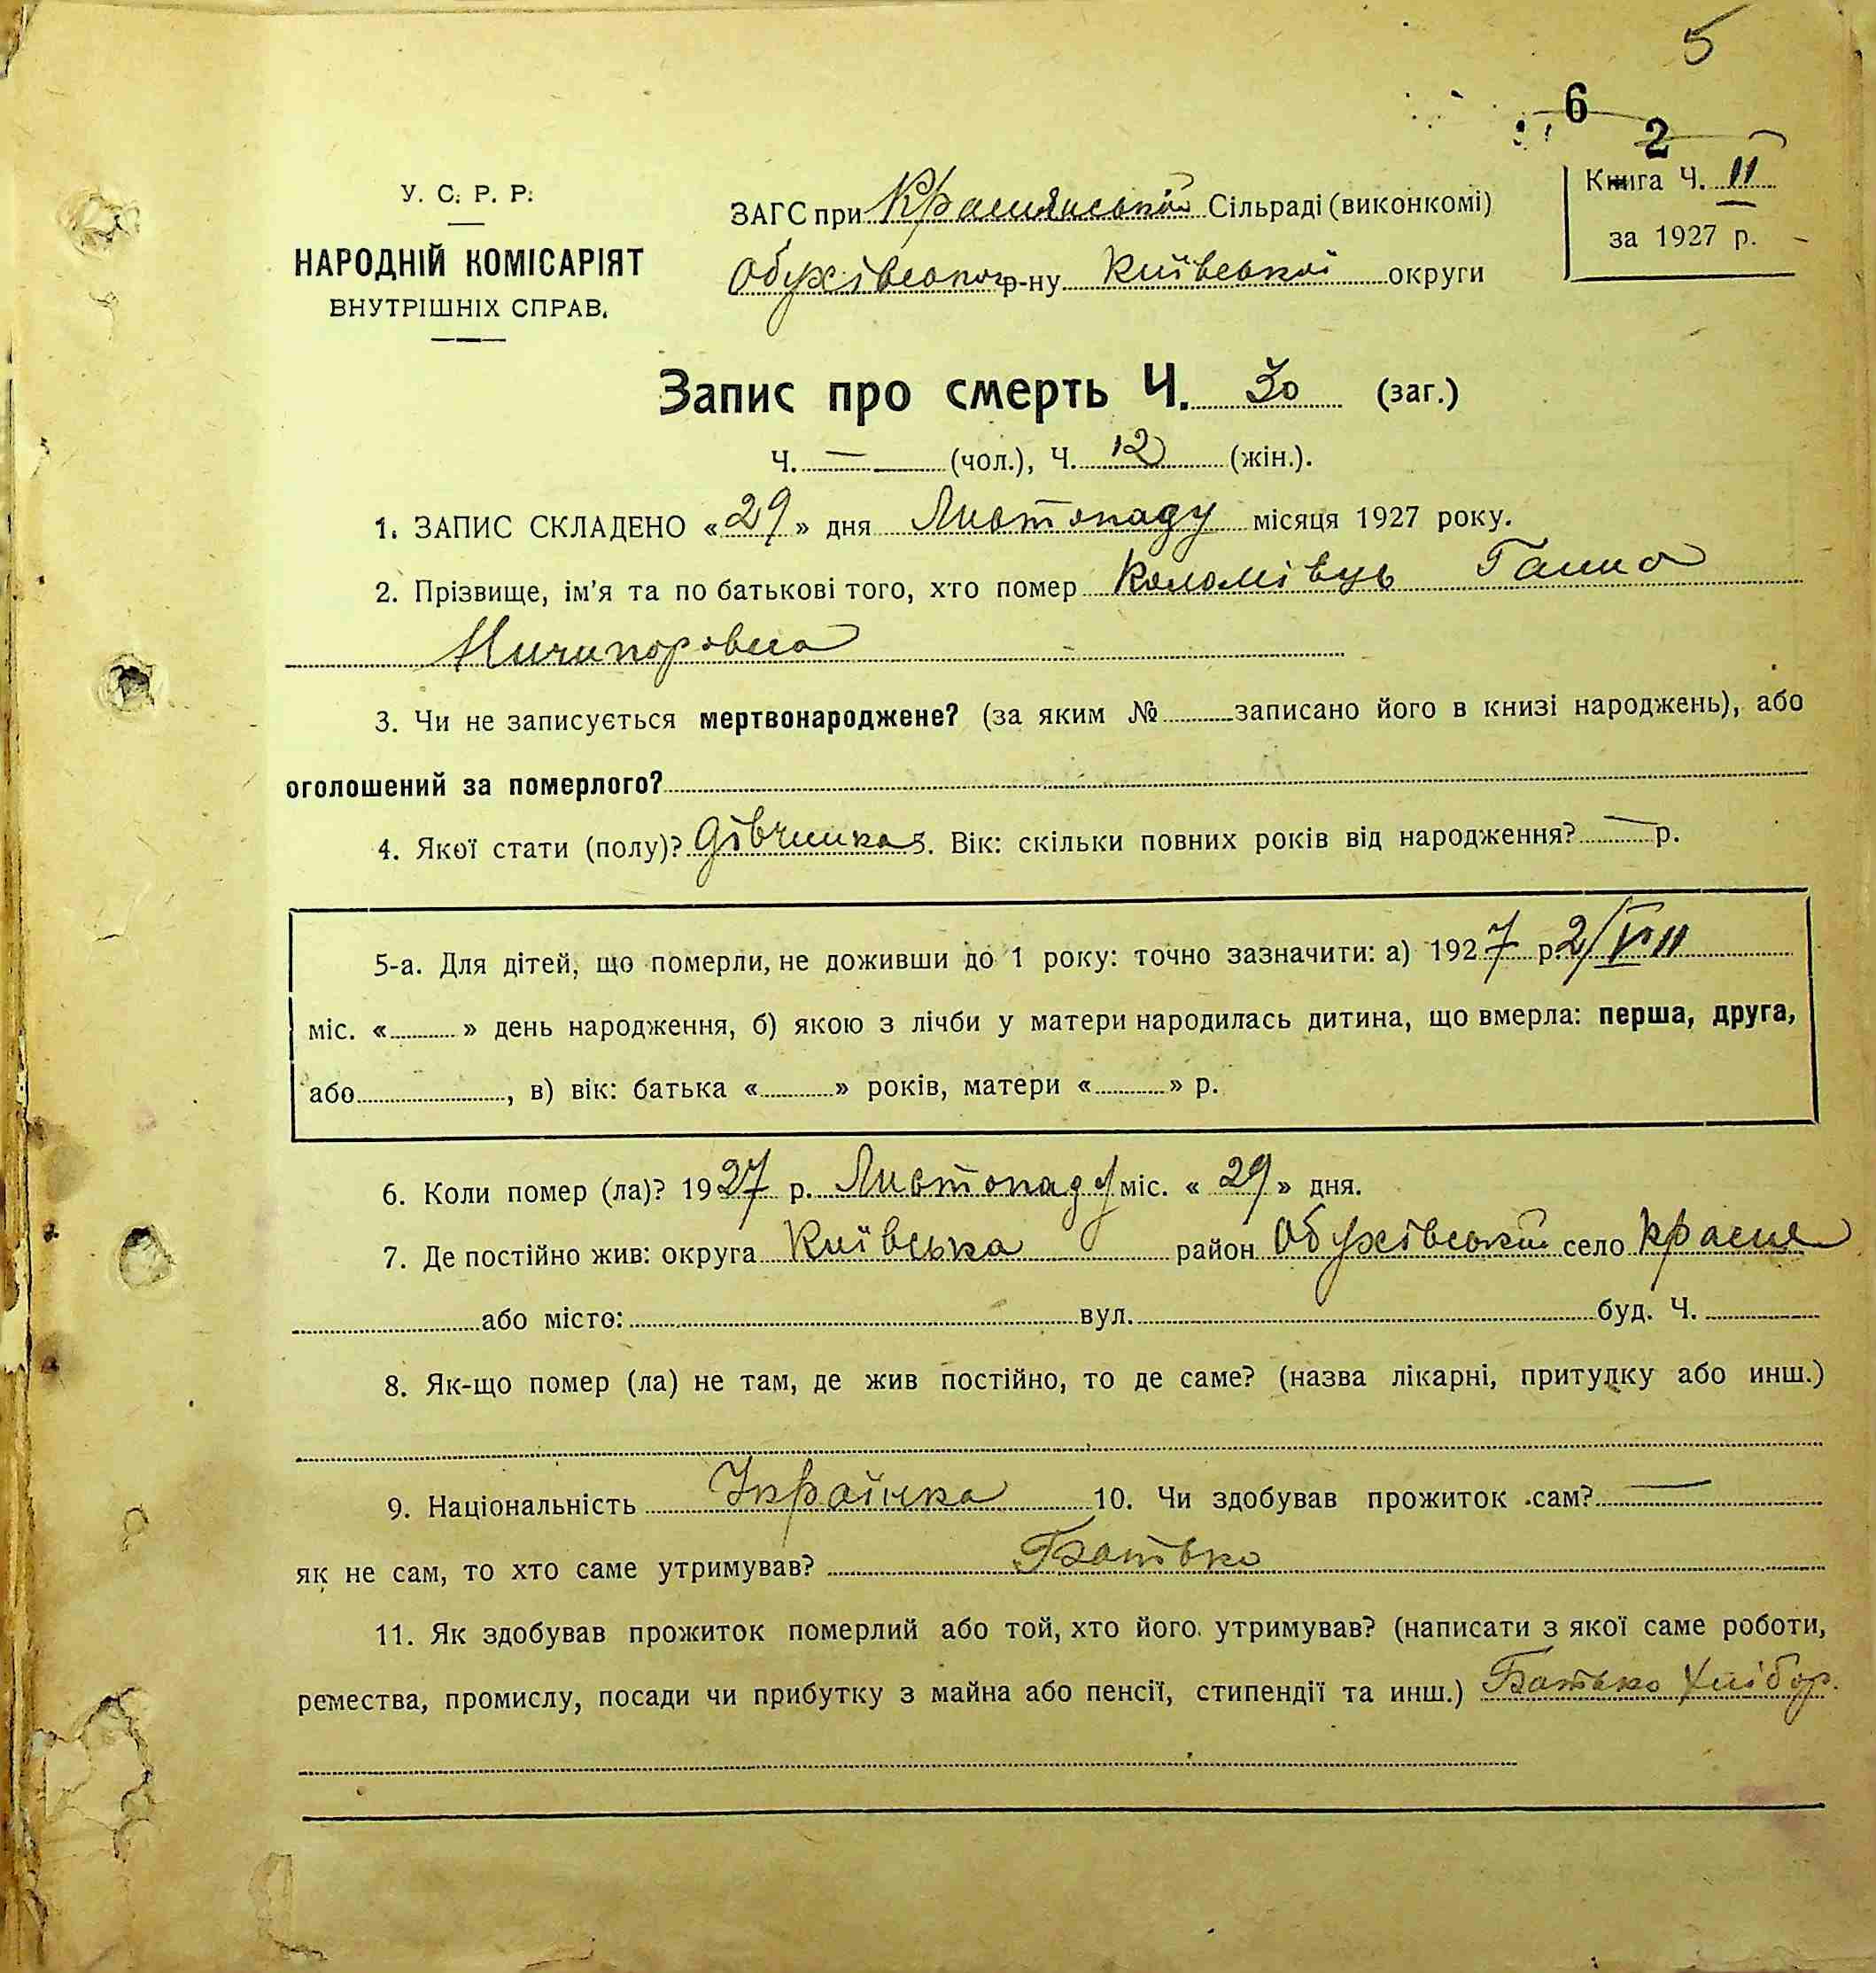 5
6
2
У. С. Р. Р.
НАРОДНІЙ КОМІСАРІЯТ
ВНУТРІШНІХ СПРАВ.
ЗАГС при Краснянській Сільраді (виконкомі)
Обухівськог р-ну Київської округи
Книга Ч. II
за 1927 р.
Запис про смерть Ч. 30 (заг.)
Ч. — (чол.), Ч. 12 (жін.).
1. ЗАПИС СКЛАДЕНО «29» дня Листопаду місяця 1927 року.
2. Прізвище, ім'я та по батькові того, хто помер Коломієць Ганна
Ничипоровна
3. Чи не записується мертвонароджене? (за яким № записано його в книзі народжень), або
оголошений за померлого?
4. Якої стати (полу)? Дівчинка 5. Вік: скільки повних років від народження? — р.
5-а. Для дітей, що померли, не доживши до 1 року: точно зазначити: а) 1927 р. 2/VII
міс. « » день народження, б) якою з лічби у матери народилась дитина, що вмерла: перша, друга,
або , в) вік: батька « » років, матери « » р.
6. Коли помер (ла)? 1927 р. Листопаду міс. «29» дня.
7. Де постійно жив: округа Київська район Обухівський село Красне
або місто: вул. буд. Ч.
8. Як-що помер (ла) не там, де жив постійно, то де саме? (назва лікарні, притулку або инш.)
9. Національність Українка 10. Чи здобував прожиток сам? —
як не сам, то хто саме утримував? Батько
11. Як здобував прожиток померлий або той, хто його утримував? (написати з якої саме роботи,
ремества, промислу, посади чи прибутку з майна або пенсії, стипендії та инш.) Батько Хлібор.